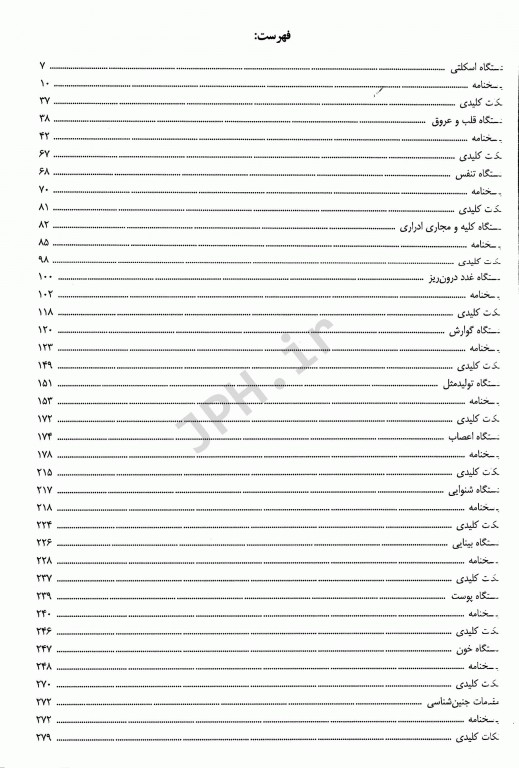 فهرست:
ستگاه اسکلتی ........ ۷
سخنامه ........ ۱۰
کت کلیدی ........ ۳۷
ستگاه قلب و عروق ........ ۳۸
سخنامه ........ ۴۲
کت کلیدی ........ ۶۷
ستگاه تنفس ........ ۶۸
سخنامه ........ ۷۰
کت کلیدی ........ ۸۱
ستگاه کلیه و مجاری ادراری ........ ۸۲
سخنامه ........ ۸۵
کت کلیدی ........ ۹۸
ستگاه غدد درون‌ریز ........ ۱۰۰
سخنامه ........ ۱۰۲
کت کلیدی ........ ۱۱۸
ستگاه گوارش ........ ۱۲۰
سخنامه ........ ۱۲۳
کت کلیدی ........ ۱۴۹
ستگاه تولیدمثل ........ ۱۵۱
سخنامه ........ ۱۵۳
کت کلیدی ........ ۱۷۲
ستگاه اعصاب ........ ۱۷۴
سخنامه ........ ۱۷۸
کت کلیدی ........ ۲۱۵
ستگاه شنوایی ........ ۲۱۷
سخنامه ........ ۲۱۸
کت کلیدی ........ ۲۲۴
ستگاه بینایی ........ ۲۲۶
سخنامه ........ ۲۲۸
کت کلیدی ........ ۲۳۷
ستگاه پوست ........ ۲۳۹
سخنامه ........ ۲۴۰
کت کلیدی ........ ۲۴۶
ستگاه خون ........ ۲۴۷
سخنامه ........ ۲۴۸
کت کلیدی ........ ۲۷۰
مقدمات جنین‌شناسی ........ ۲۷۲
سخنامه ........ ۲۷۲
کات کلیدی ........ ۲۷۹
JPH.ir